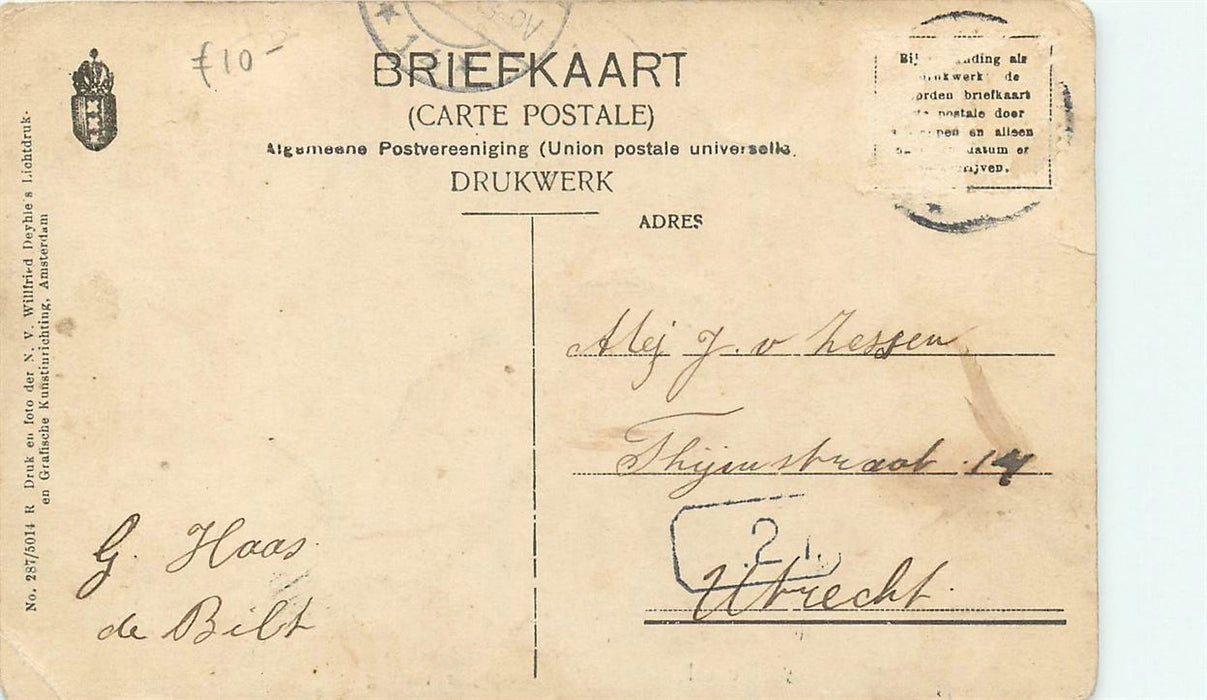 £10-
BRIEFKAART
(CARTE POSTALE)
Algemeene Postvereeniging (Union postale universelle.
DRUKWERK
ADRES
ding als
drukwerk de
orden briefkaart
postale door
en alleen
datum er
No. 287/5014 R Druk en foto der N. V. Willfried Deyhle's Lichtdruk-
en Grafische Kunstinrichting, Amsterdam
G. Haas
de Bilt
J. v Zessen
Thijmstraat 14
21.
Utrecht.